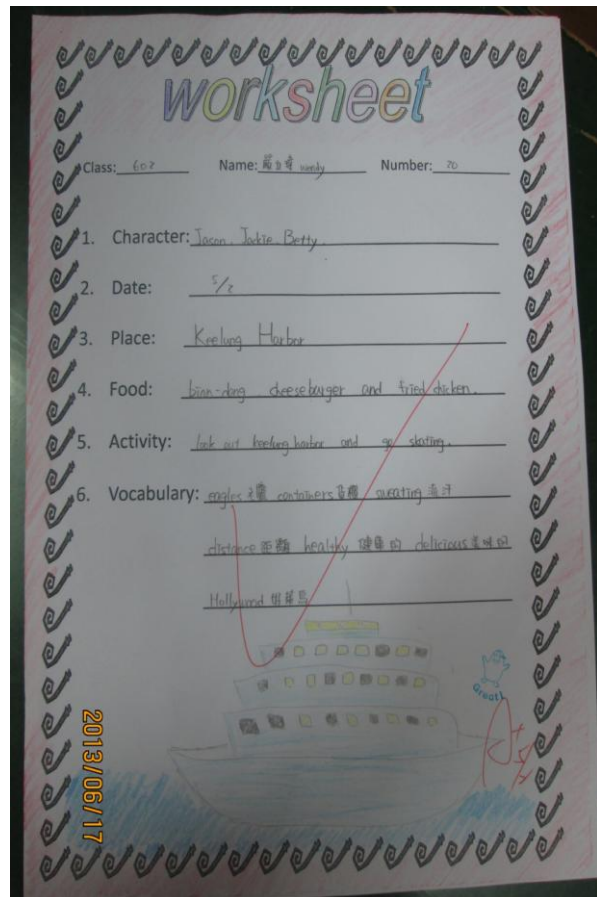 worksheet
Class: 602 Name: wendy Number: 20
1. Character: Jason, Jackie, Betty.
2. Date: 5/2
3. Place: Keelung Harbor
4. Food: bian-dang cheeseburger and fried chicken.
5. Activity: look out keelung harbor and go skating.
6. Vocabulary: eagles 老鷹 containers 貨櫃 sweating 流汗
distance 距離 healthy 健康的 delicious 美味的
Hollywood
Great!
2013/06/17